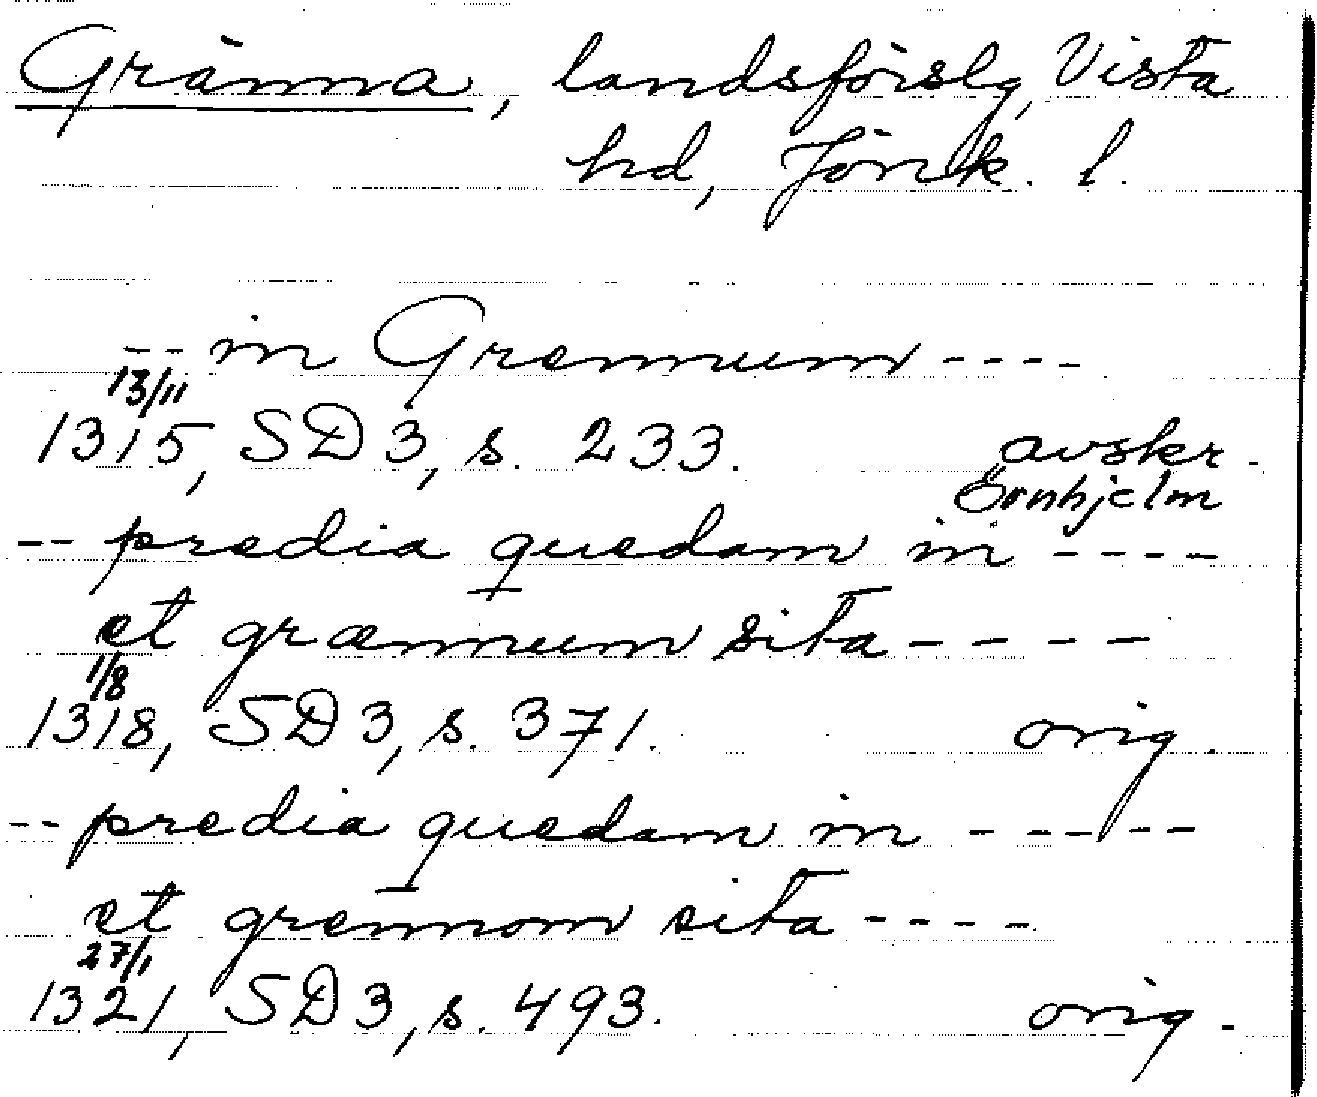 Gränna, landsförslg, Vista
hd, Jönk. l.
-- in Grennum ----
13/11
1315, SD 3, s. 233. avskr.
Örnhjelm
-- predia quedam in ----
et grænnum sita ----
1/8
1318, SD 3, s. 371. orig.
-- predia quedam in -----
et grennom sita ----
27/1
1321, SD 3, s. 493. orig.